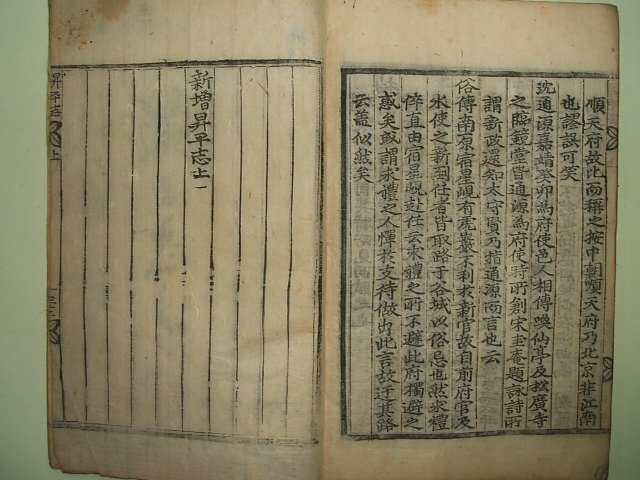 順天府故此而稱之按中朝順天府乃北京非江南
也謬誤可笑
沈通源嘉靖癸卯為府使邑人相傳喚仙亭及松廣寺
之臨鏡堂皆通源為府使時所創宋圭庵題詠詩所
謂新政遥知太守賢乃指通源而言也云
俗傳南原宿星峴有虎巖不利求新官故自前府官及
水使之新到任者皆取路于谷城以俗忌也然求禮
倅直由宿星峴赴任云求禮之所不避此府獨避之
惑矣或謂求禮之人憚於支待做出此言故迂其路
云盖似然矣
新增昇平志上
昇平志 上